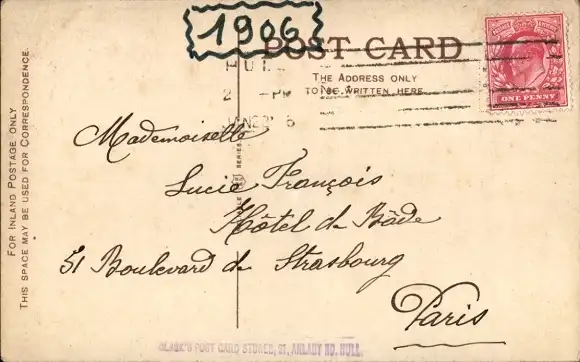 1906
POST CARD
THE ADDRESS ONLY
TO BE WRITTEN HERE
HULL
2 - PM
JAN 23 6
ONE PENNY
FOR INLAND POSTAGE ONLY
THIS SPACE MAY BE USED FOR CORRESPONDENCE.
SERIES
Mademoiselle
Lucie François
Hôtel de Bâde
51 Boulevard de Strasbourg
Paris
CLARK'S POST CARD STORES, 27, ANLABY RD. HULL.